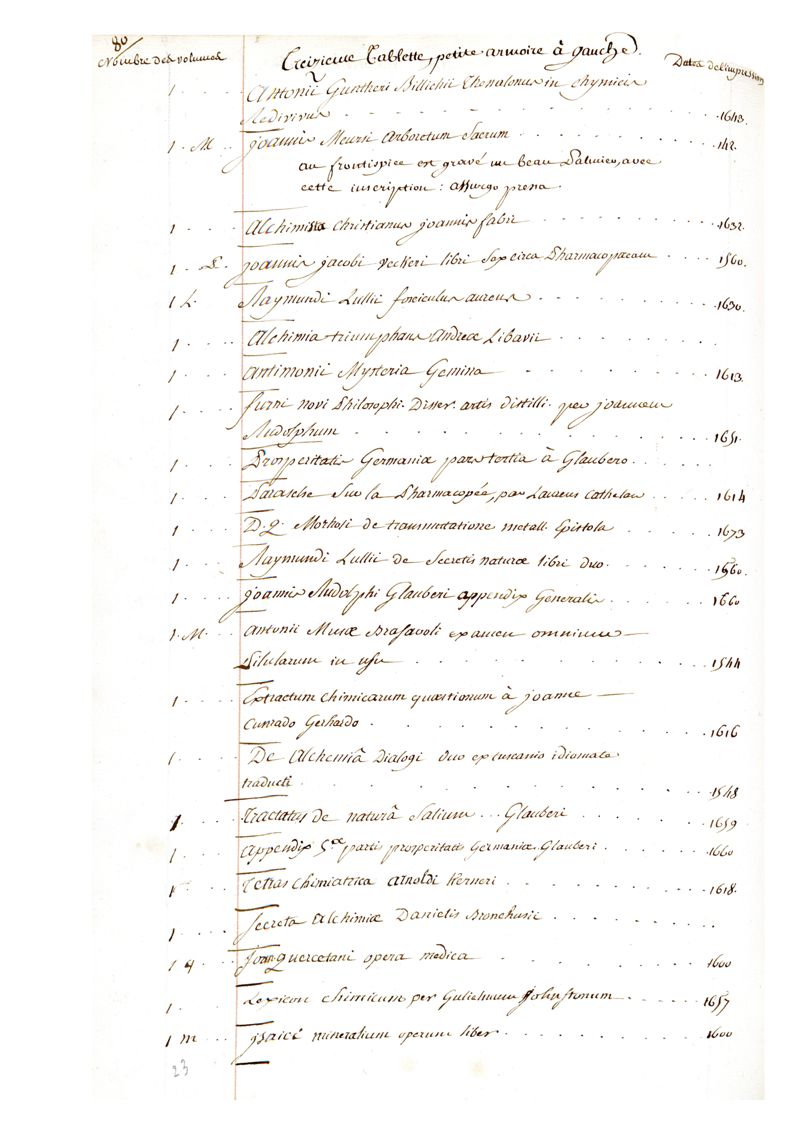 80
Nombre des volumes
Treizieme Tablette, petite armoire à gauche.
Dates de l'impression
1 Antonii Guntheri Billichii Thessalonus in chymicis
Redivivus 1643.
1 M joannis Meursi Arboretum Sacrum 1642.
au frontispice est gravé un beau Palmier, avec
cette inscription: assurgo pressa.
1 Alchimista christianus joannis fabri 1632.
1 L. joannis jacobi veckeri libri Sex circa Pharmacopoeam 1560.
1 L. Raymundi Lullii fasciculus aureus 1630.
1 Alchimia triumphans Andreæ Libavii
1 Antimonii Mysteria Gemina 1613.
1 furni novi Philosophi. Disser. artis distilli. per joannem
Rudolphum 1651.
1 Prosperitatis Germaniæ pars tertia à Glaubero.
1 Parasche Sur la Pharmacopée, par Laurens Cathelan 1614
1 D. G. Morhofi de transmutatione metall. Epistola 1673
1 Raymundi Lullii de Secretis naturæ libri duo. 1560.
1 joannis Rudolphi Glauberi appendix Generalis 1660
1. M. Antonii Musæ Brasavoli examen omnium
Pilularum in usu 1544
1 Extractum chimicarum quæstionum à joanne
Cunrado Gerhardo. 1616
1 De Alchemiâ Dialogi duo ex tuscanio idiomate
traducti 1548
1 Tractatus de naturâ Salium ... Glauberi 1659
1 Appendix 5.æ partis prosperitatis Germaniæ. Glauberi. 1660
1 Tetras chimiatrica Arnoldi Kerneri 1618.
1 Secreta Alchimiæ Danielis Bronchusii
1 4 Joan. Quercetani opera medica 1600
1. Lexicon chimicum per Gulielmum Johnstonum 1657
1 m jsaici mineralium operum liber 1600
23